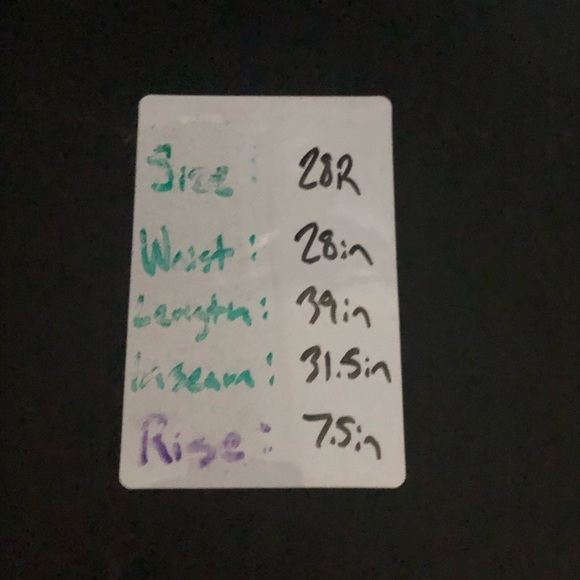 Size: 28R
Waist: 28in
Length: 39in
Inseam: 31.5in
Rise: 7.5in